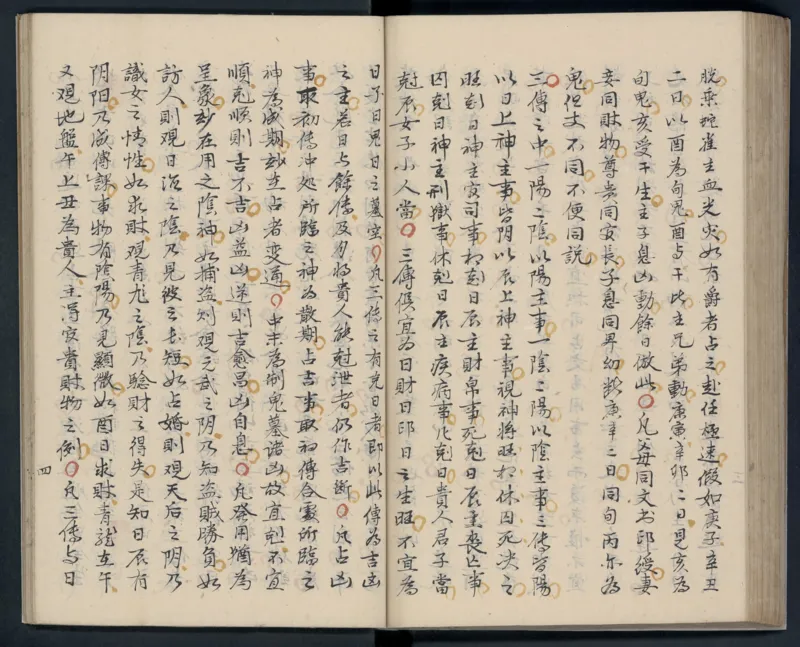 脫乘蛇雀主血光火如有爵者占之赴任極速假如庚子辛丑
二日以酉為旬鬼酉与干比主兄弟動庚寅辛卯二日見亥為
旬鬼亥受干生主子息凶動餘日倣此〇凡父母同文书印綬妻
妾同財物尊貴同官長子息同卑幼断庚辛二日同旬丙尔為
鬼但丈不同不便同説
三傳之中一陽二陰以陽主事一陰二陽以陰主事三傳皆陽
以日上神主事皆阴以辰上神主事視神将旺相休囚死决之
旺剋日神主官司事相剋日辰主財帛事死剋日辰主喪亡事
囚剋日神主刑獄事休剋日辰主疾病事凡剋日貴人君子當
剋辰女子小人當〇三傳俱宜为日財日印日之生旺不宜為
日子日鬼日之墓空〇凡三傳之有克日者即以此傳為吉凶
之主若日与餘傳及分将貴人能尅泄者仍作吉斷〇凡占凶
事取初傳冲処所臨之神为散期占吉事取初傳合處所臨之
神為成期妙在占者变通〇中末为制鬼墓诸凶故宜剋不宜
順克順則吉不吉凶益凶逆則吉愈昌凶自息〇凡發用猶為
呈象妙在用之陰神如捕盗則观元武之阴乃知盗賊勝負如
訪人則观日後之陰乃見彼之长短如占婚則观天后之阴乃
識女之情性如求財观青龙之陰乃驗財之得失是知日辰有
阴阳乃成傳課事物有陰陽乃見顯微如酉日求財青龍在午
又观地盤午上丑為貴人主得官貴財物之例〇凡三傳与日
四